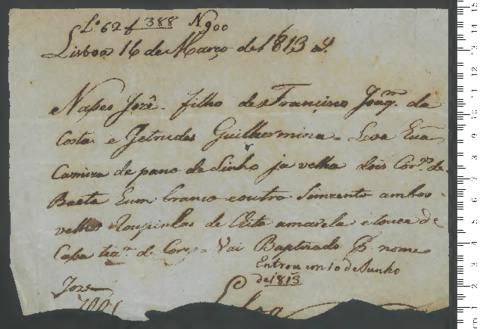 Lº 62 f 388 N 900
Lisboa 16 de Março de 1813 a
Nasceo Jozé. filho de Francisco Joaq.m da
Costa e Getrudes Guilhermina. Leva Eua
Camiza de pano de Linho ja velha dois Cor.os de
Baeta Eum branco eoutro Sinzento ambos
velhos Roupinhas de Chita amarela etouca de
Caça tra.. de Vai Baptizado P nome
Entrou em 10 de Junho
Joze de 1813